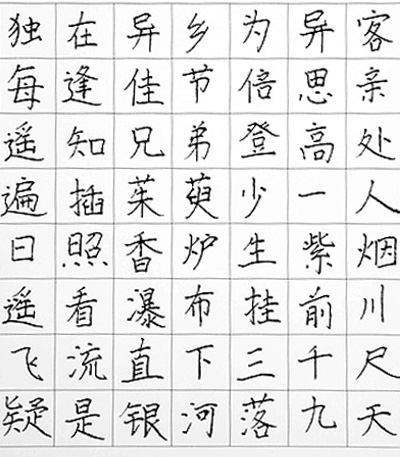 独在异乡为异客
每逢佳节倍思亲
遥知兄弟登高处
遍插茱萸少一人
日照香炉生紫烟
遥看瀑布挂前川
飞流直下三千尺
疑是银河落九天